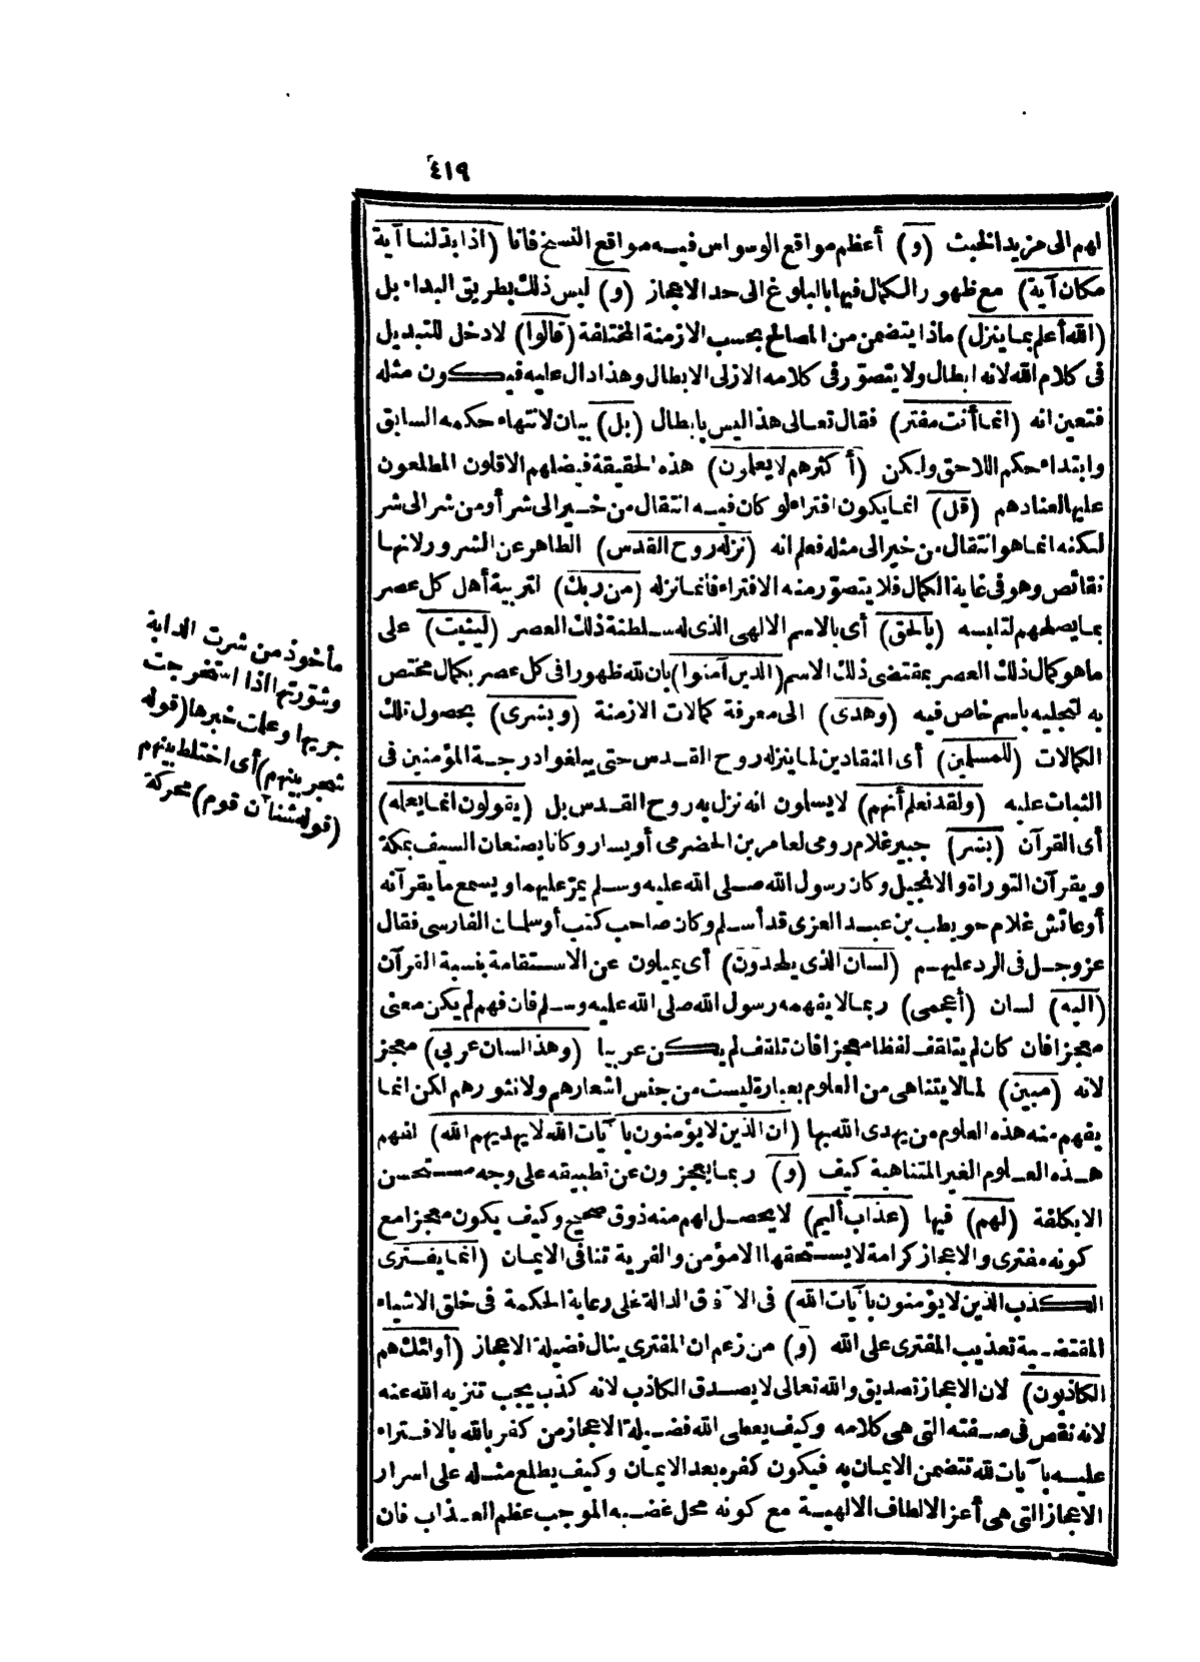 ٤١٩
لهم الى مزيد الخبث (و) أعظم مواقع الوسواس فيه مواقع النسخ فانا (اذا بدلنا آية
مكان آية) مع ظهور الكمال فيها بالبلوغ الى حد الاعجاز (و) ليس ذلك بطريق البداء بل
(الله أعلم بما ينزل) ماذا يتضمن من المصالح بحسب الازمنة المختلفة (قالوا) لا دخل للتبديل
فى كلام الله لانه ابطال ولا يتصوّر فى كلامه الازلى الابطال وهذا دال عليه فيكون مثله
فتعين انه (انما أنت مفتر) فقال تعالى هذا ليس بابطال (بل) بيان لانتهاء حكمه السابق
وابتداء حكم اللاحق ولكن (أكثرهم لا يعلمون) هذه الحقيقة فيضلهم الاقلون المطلعون
عليها لعنادهم (قل) انما يكون افتراء لو كان فيه انتقال من خير الى شر أو من شر الى شر
لكنه انما هو انتقال من خير الى مثله فعلم انه (نزله روح القدس) الطاهر عن الشرور لانها
نقائص وهو فى غاية الكمال فلا يتصوّر منه الافتراء فانما نزله (من ربك) لتربية أهل كل عصر
بما يصلحهم لتلبسه (بالحق) أى بالاسم الالهى الذى له سلطنة ذلك العصر (ليثبت) على
ما هو كمال ذلك العصر بمقتضى ذلك الاسم (الذين آمنوا) بان لله ظهورا فى كل عصر بكمال مختص
به لتجليه باسم خاص فيه (وهدى) الى معرفة كمالات الازمنة (وبشرى) بحصول تلك
الكمالات (للمسلمين) أى المنقادين لما ينزله روح القدس حتى يبلغوا درجة المؤمنين فى
الثبات عليه (ولقد نعلم أنهم) لا يسلمون انه نزل به روح القدس بل (يقولون انما يعلمه)
أى القرآن (بشر) جبير غلام رومى لعامر بن الحضرمى أو يسار وكانا يصنعان السيف بمكة
ويقرآن التوراة والانجيل وكان رسول الله صلى الله عليه وسلم يمرّ عليهما ويسمع ما يقرآنه
أو عائش غلام حويطب بن عبد العزى قد أسلم وكان صاحب كتب أو سلمان الفارسى فقال
عز وجل فى الرد عليهم (لسان الذى يلحدون) أى يميلون عن الاستقامة بنسبة القرآن
(اليه) لسان (أعجمى) ربما لا يفهمه رسول الله صلى الله عليه وسلم فان فهم لم يكن معنى
معجزا فان كان لم يتلقف لفظا معجزا فان تلقف لم يكن عربيا (وهذا لسان عربي) معجز
لانه (مبين) لما لا يتناهى من العلوم بعبارة ليست من جنس اشعارهم ولا نثورهم لكن انما
يفهم منه هذه العلوم من يهدى الله بها (ان الذين لا يؤمنون بآيات الله لا يهديهم الله) لفهم
هذه العلوم الغير المتناهية كيف (و) ربما يعجزون عن تطبيقه على وجه مستحسن
الابكلفة (لهم) فيها (عذاب أليم) لا يحصل لهم منه ذوق صحيح وكيف يكون معجزا مع
كونه مفترى والاعجاز كرامة لا يستحقها الا مؤمن والفرية تنافى الايمان (انما يفترى
الكذب الذين لا يؤمنون بآيات الله) فى الآفاق الدالة على رعاية الحكمة فى خلق الاشياء
المقتضية تعذيب المفترى على الله (و) من زعم ان المفترى ينال فضيلة الاعجاز (أولئك هم
الكاذبون) لان الاعجاز تصديق والله تعالى لا يصدق الكاذب لانه كذب يجب تنزيه الله عنه
لانه نقص فى صفته التى هى كلامه وكيف يعطى الله فضيلة الاعجاز من كفر بالله بالافتراء
عليه بآيات لله تتضمن الايمان به فيكون كفره بعد الايمان وكيف يطلع مثله على اسرار
الاعجاز التى هى أعز الالطاف الالهية مع كونه محل غضبه الموجب عظم العذاب فان
مأخوذ من شرت الدابة
وشورتها اذا استخرجت
جريها وعلمت خبرها (قوله
شجر بينهم) أى اختلط بينهم
(قوله شنآن قوم) محركة